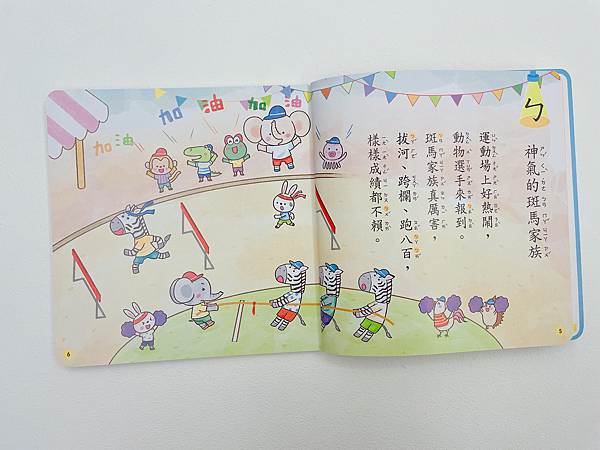 ㄅ
神氣的斑馬家族
運動場上好熱鬧，
動物選手來報到。
斑馬家族真厲害，
拔河、跨欄、跑八百，
樣樣成績都不賴。
5
加油
加油
加油
6